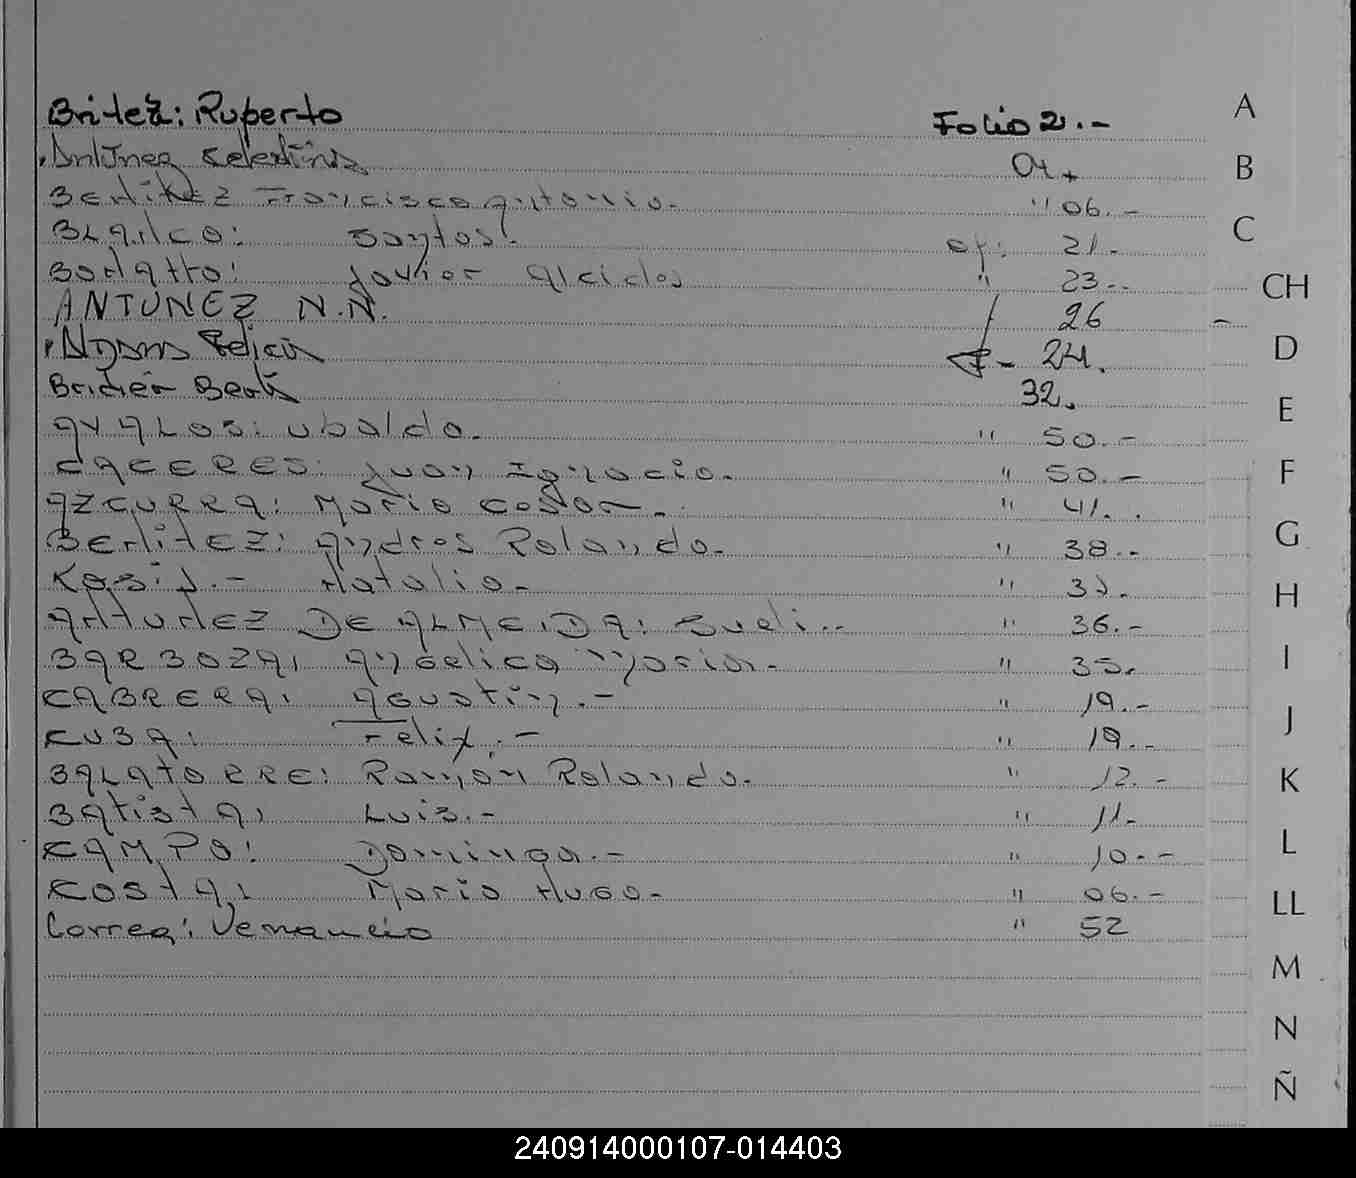 Britez: Ruperto Folio 2.-
Antunez Celestino 04
Benitez Francisco Antonio. " 06.-
Blanco: Santos. of: 21.-
Bonatto: Javier Alcides " 23.-
ANTUNEZ N.N. 26
Felicia 24.
Bridier Berta 32.
Avalos: Ubaldo. " 50.-
Caceres: Juan Ignacio. " 50.-
Azcurra: Mario Cesar. " 41.
Benitez: Andres Rolando. " 38.-
Natalio. "
Antunez De Almeida: Sueli.. " 36.-
Barboza: Angelica Maria. " 35.
Cabrera: Agustin.- " 19.-
Cuba: Felix.- " 19.-
Balatorre: Ramón Rolando. " 12.-
Batista: Luis.- " 11.-
Campo: Dominga.- " 10.-
Costa: Mario Hugo. " 06.-
Correa: Venancio " 52
A
B
C
CH
D
E
F
G
H
I
J
K
L
LL
M
N
Ñ
240914000107-014403